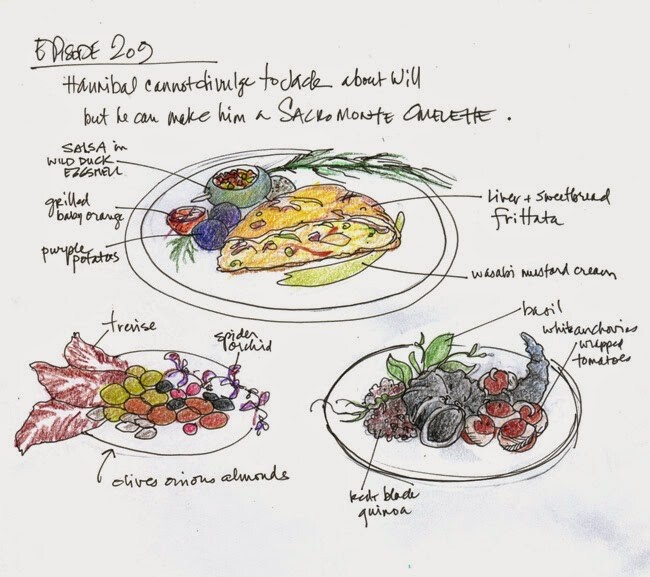 EPISODE 209
Hannibal cannot divulge to Jack about Will
but he can make him a SACROMONTE OMELETTE.
SALSA in
WILD DUCK
EGGSHELL
grilled
baby orange
purple
potatos
Liver + sweetbread
frittata
wasabi mustard cream
trevise
spider
orchid
basil
white anchovies
wrapped
tomatoes
olives onions almonds
black
quinoa